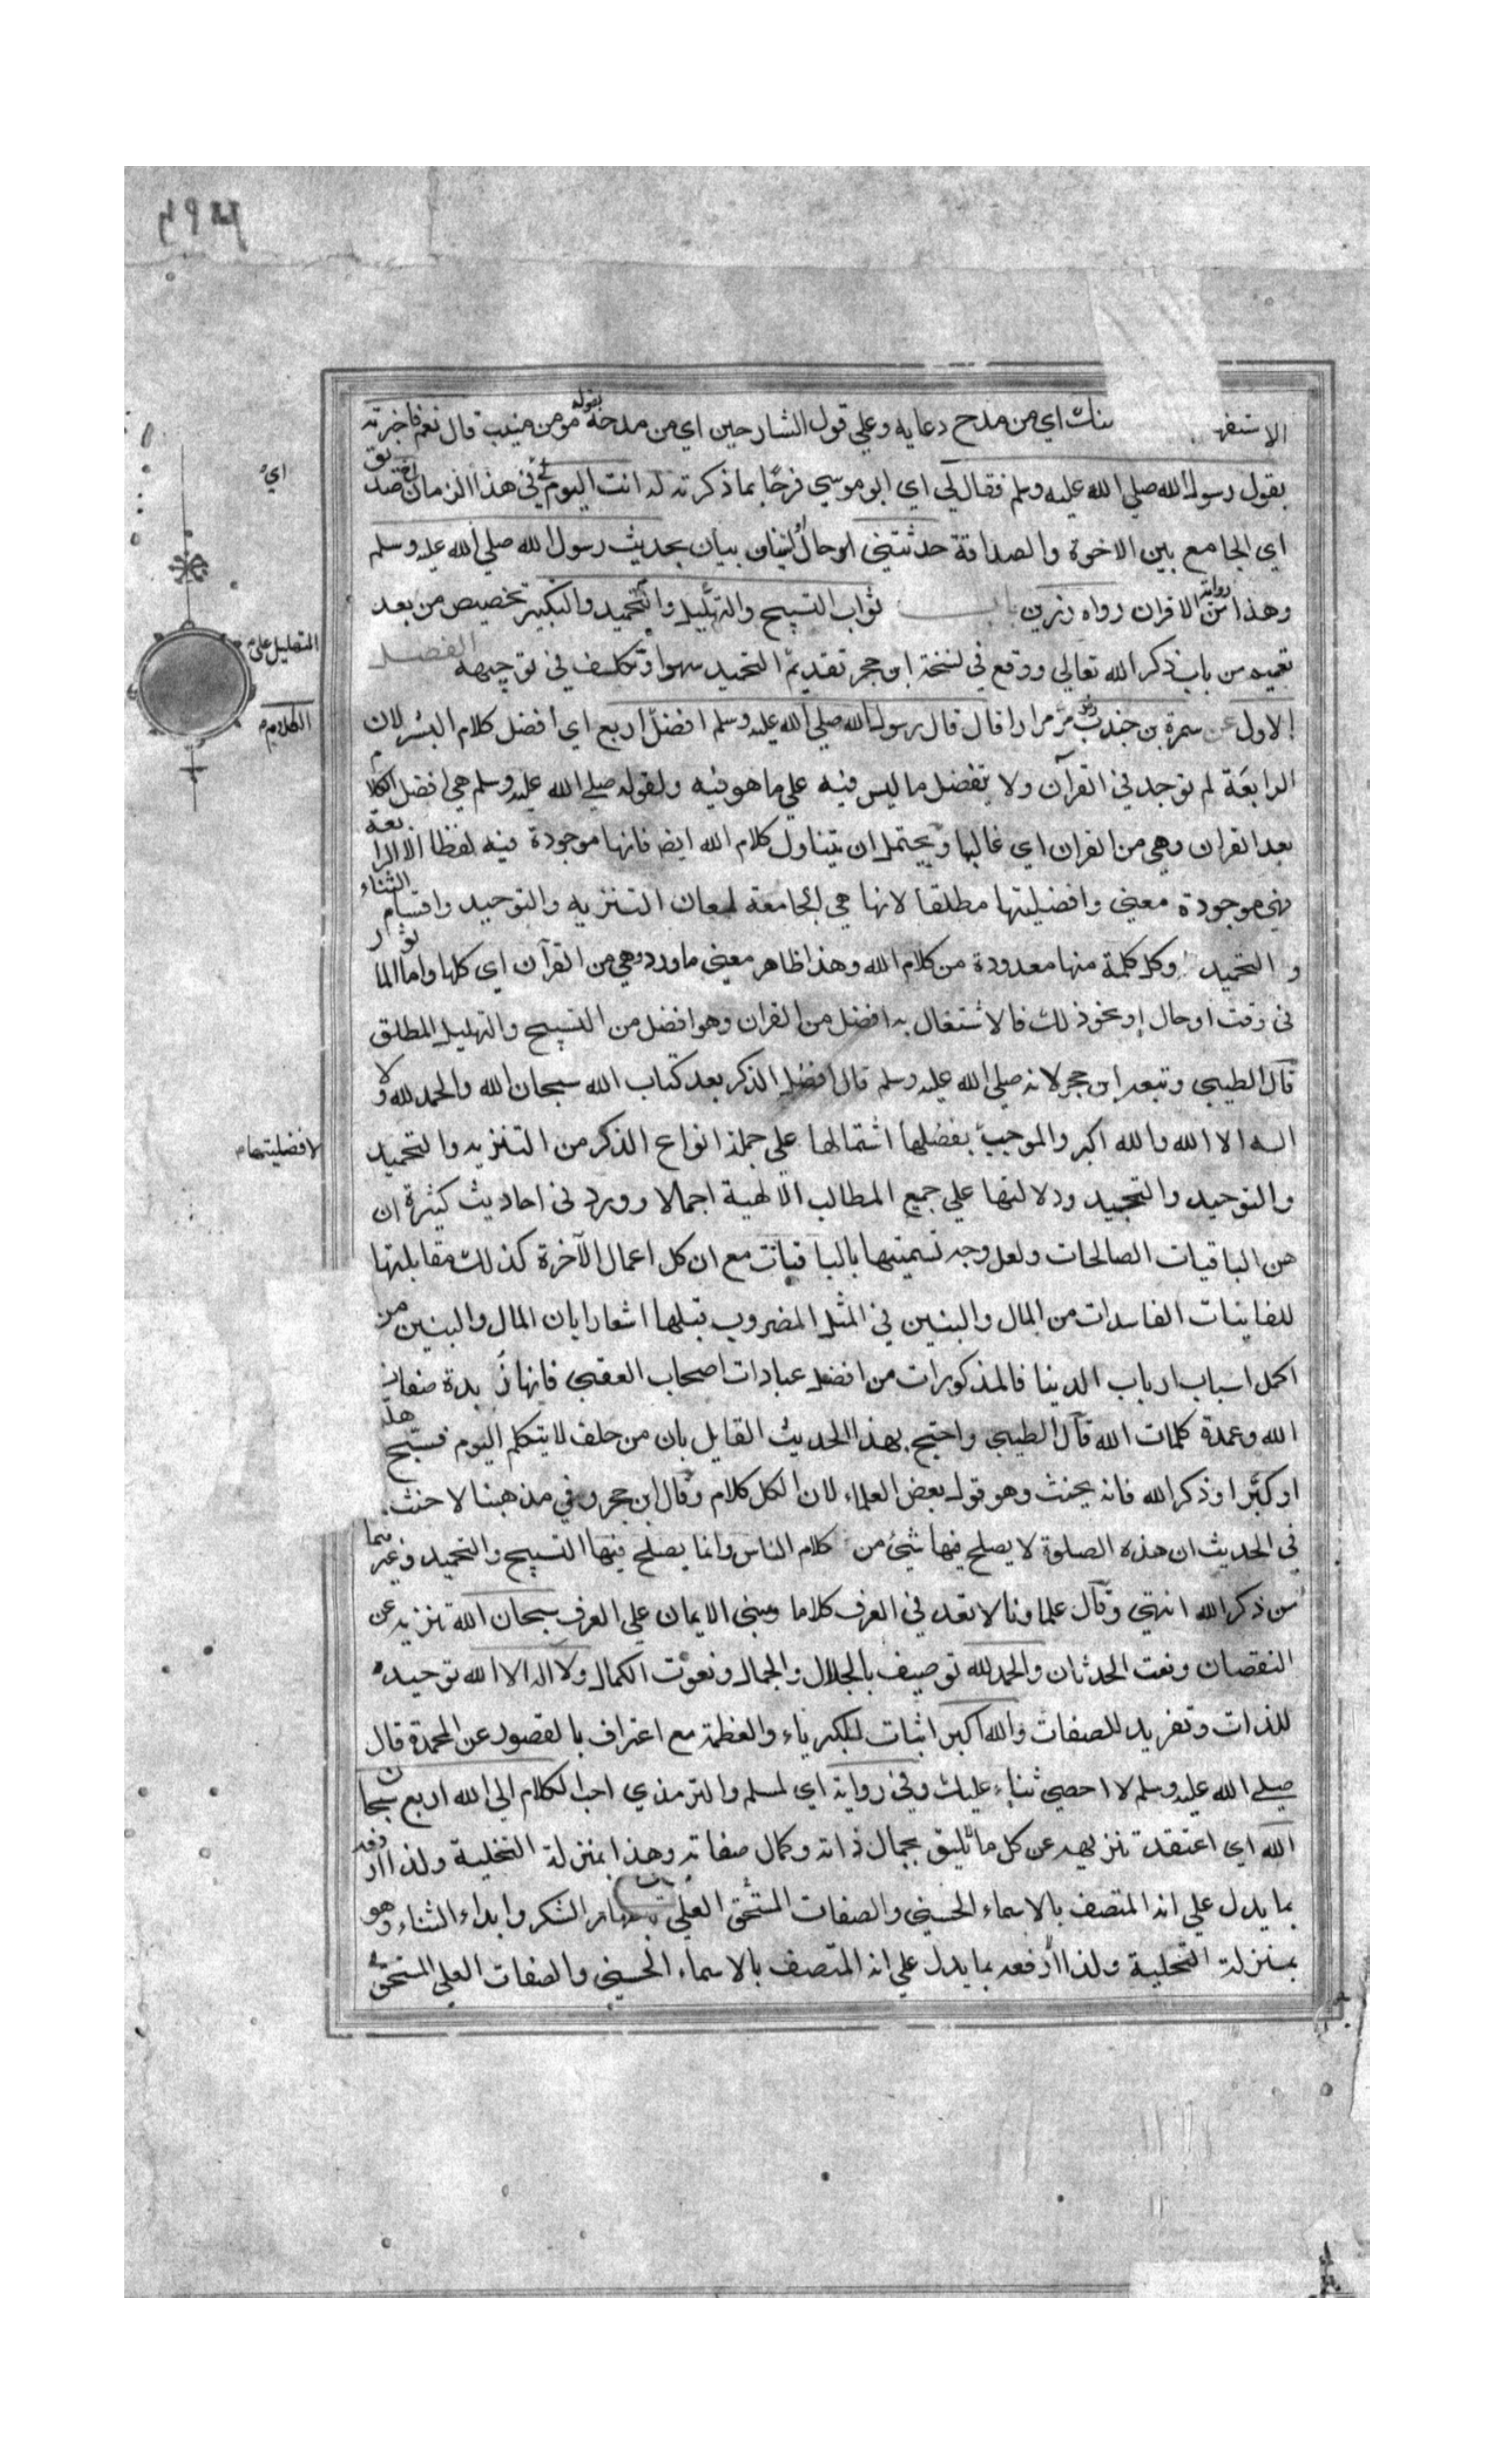 ٢٩٤
الاستفه منك اي من مدح دعايه وعلي قول الشارحين اي من مدحه بقوله مومن منيب قال نعم فاخبرته
بقول رسول الله صلي الله عليه وسلم فقال لي اي ابو موسي فرحا بما ذكرته له انت اليوم اي في هذا الزمان اخ صديق
اي الجامع بين الاخوة والصداقة حدثتني او حال بيان بحديث رسول الله صلي الله عليه وسلم
وهذا من رواية الاقران رواه رزين باب ثواب التسبيح والتهليل والتحميد والتكبير تخصيص من بعد
تعميم من باب ذكر الله تعالي ووقع في نسخة ابن حجر تقديم التحميد سهوا وتكلف في توجيهه الفصل
الاول عن سمرة بن جندب مر مرارا قال قال رسول الله صلي الله عليه وسلم افضل اربع اي افضل كلام البشر لان
الرابعة لم توجد في القرآن ولا يفضل ما ليس فيه علي ما هو فيه ولقوله صلي الله عليه وسلم هي افضل الكلام
بعد القران وهي من القران اي غالبها ويحتمل ان يتناول كلام الله ايضا فانها موجودة فيه لفظا الا الرابعة
فهي موجودة معني وافضليتها مطلقا لانها هي الجامعة لمعان التنزيه والتوحيد واقسام الثناء
والتحميد وكل كلمة منها معدودة من كلام الله وهذا ظاهر معني ما ورد وهي من القرآن اي كلها واما الماثور
في وقت او حال او نحو ذلك فالاشتغال به افضل من القران وهو افضل من التسبيح والتهليل المطلق
قال الطيبي وتبعه ابن حجر لانه صلي الله عليه وسلم قال افضل الذكر بعد كتاب الله سبحان الله والحمد لله ولا
اله الا الله والله اكبر والموجب بفضلها اشتمالها علي جملة انواع الذكر من التنزيه والتحميد
والتوحيد والتمجيد ودلالتها علي جميع المطالب الالهية اجمالا وورد في احاديث كثيرة ان
هن الباقيات الصالحات ولعل وجه تسميتها بالباقيات مع ان كل اعمال الآخرة كذلك مقابلتها
للفانيات الفاسدات من المال والبنين في المثل المضروب قبلها اشعارا بان المال والبنين من
اكمل اسباب ارباب الدينا فالمذكورات من افضل عبادات اصحاب العقبي فانها زبدة صفات
الله وعمدة كلمات الله قال الطيبي واحتج بهذا الحديث القايل بان من حلف لا يتكلم اليوم فسبح هلل
او كبر او ذكر الله فانه يحنث وهو قول بعض العلماء لان الكل كلام وقال ابن حجر وفي مذهبنا لا حنث
في الحديث ان هذه الصلوة لا يصلح فيها شئ من كلام الناس وانما يصلح فيها التسبيح والتحميد وغيرهما
من ذكر الله انتهي وقال علماونا لا تعد في العرف كلاما ومبني الايمان علي العرف سبحان الله تنزيه عن
النقصان ونعت الحدثان والحمد لله توصيف بالجلال والجمال ونعوت الكمال ولا اله الا الله توحيد
للذات وتفريد للصفات والله اكبر اثبات للكبرياء والعظمة مع اعتراف بالقصور عن المحمدة قال
صلي الله عليه وسلم لا احصي ثناء عليك وفي رواية اي لمسلم والترمذي احب الكلام الي الله اربع سبحان
الله اي اعتقدت تنزيهه عن كل ما لايليق بجمال ذاته وكمال صفاته وهذا بمنزلة التخلية ولذا اردفه
بما يدل علي انه المتصف بالاسماء الحسني والصفات العلي المستحق الشكر وابداء الثناء وهو
بمنزلة التحلية ولذا اردفه بما يدل علي انه المتصف بالاسماء الحسني والصفات العلي المستحق
اي
التهليل علي
الكلام م
لافضليتها م